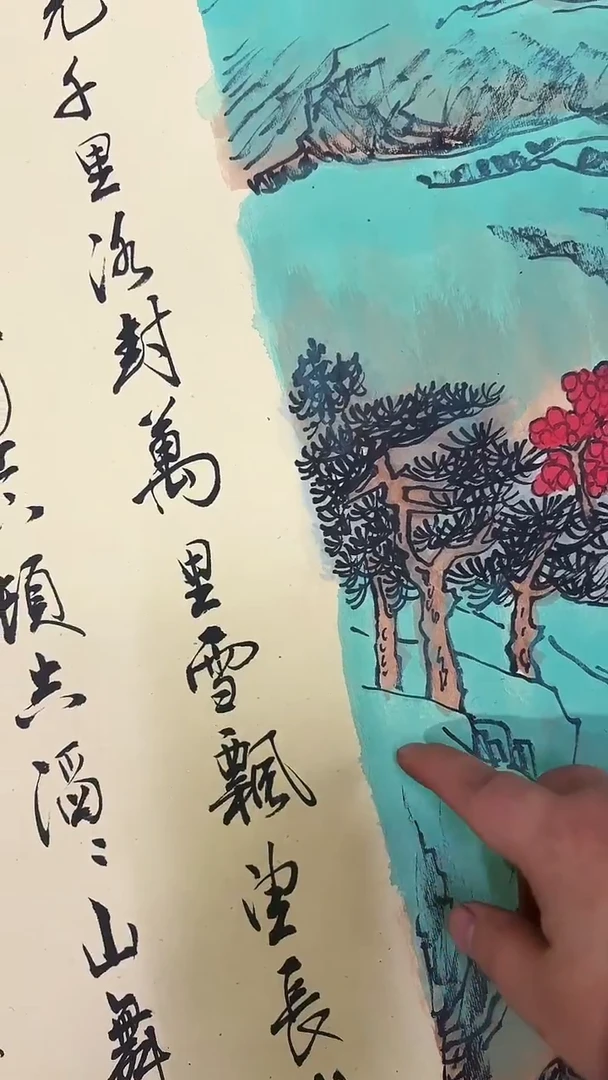 光千里冰封萬里雪飄望長
頓失滔〻山舞